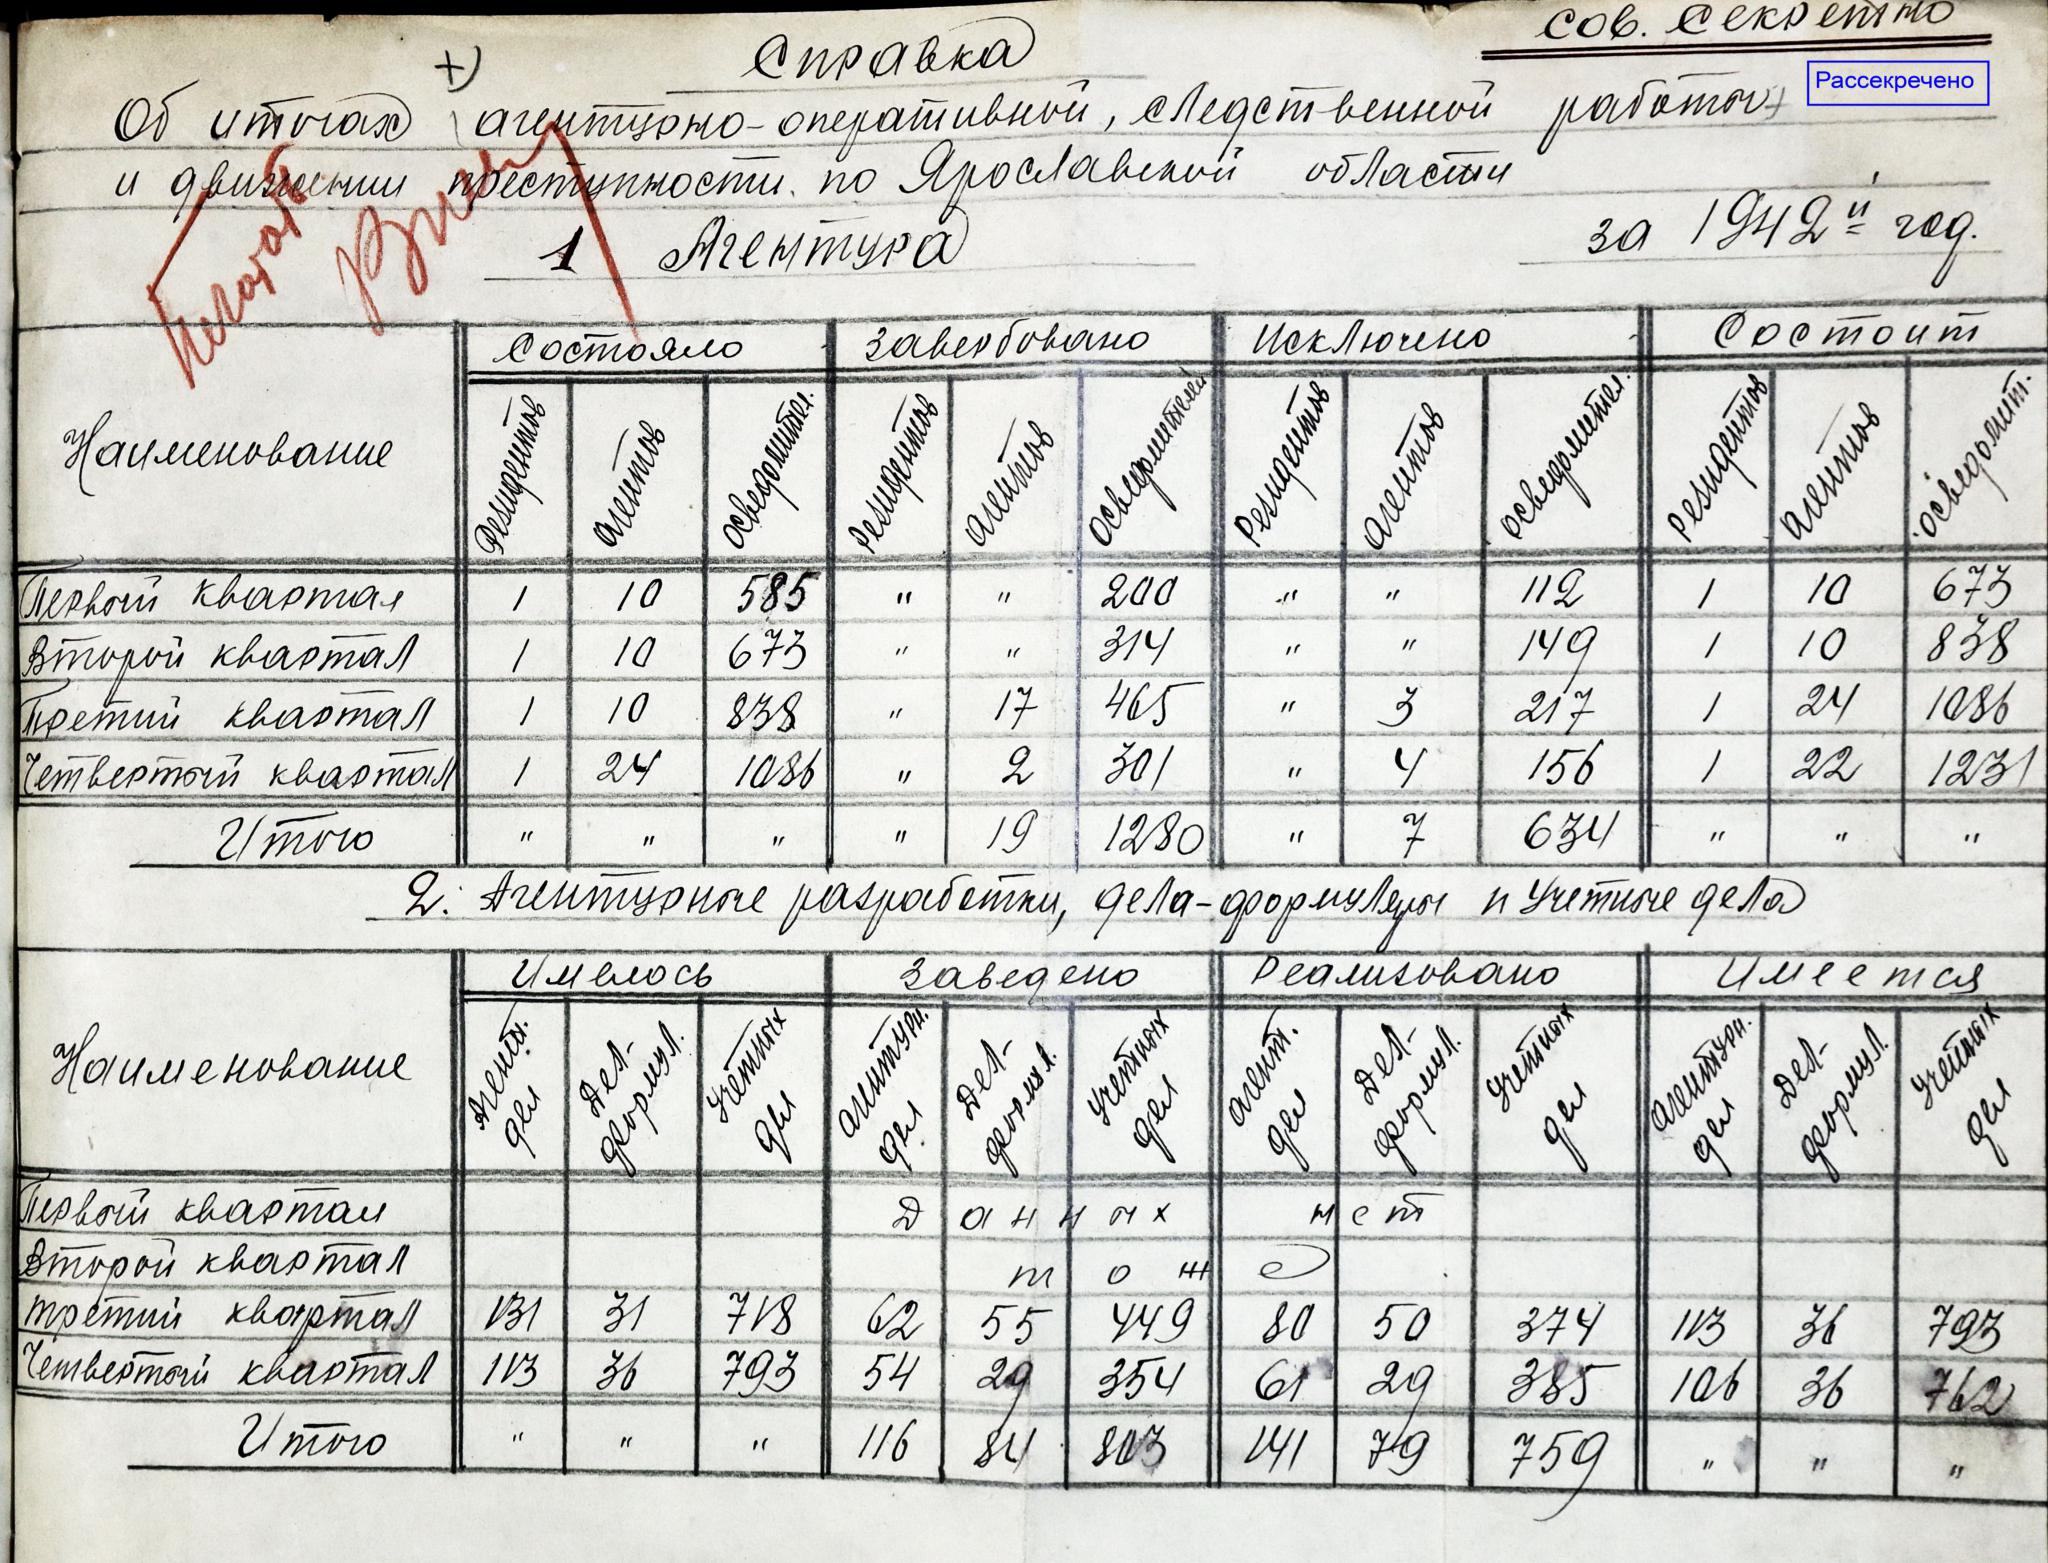 Сов. Секретно
Рассекречено
+)
Справка
Об итогах агентурно-оперативной, следственной работы
и движении преступности по Ярославской области
за 1942й год.
1 Агентура
Наименование Состояло Завербовано Исключено Состоит
Резидентов Агентов Осведомител. Резидентов Агентов Осведомителей Резидентов Агентов Осведомител. Резидентов Агентов Осведомит.
Первый квартал 1 10 585 " " 200 " " 112 1 10 673
Второй квартал 1 10 673 " " 314 " " 149 1 10 838
Третий квартал 1 10 838 " 17 465 " 3 217 1 24 1086
Четвертый квартал 1 24 1086 " 2 301 " 4 156 1 22 1231
Итого " " " " 19 1280 " 7 634 " " "
2. Агентурные разработки, дела-формуляры и учетные дела
Наименование Имелось Заведено Реализовано Имеется
Агентур. дел Дел-формул. Учетных дел Агентурн. дел Дел-формул. Учетных дел Агент. дел Дел-формул. Учетных дел Агентурн. дел Дел-формул. Учетных дел
Первый квартал Данных нет
Второй квартал тоже
Третий квартал 131 31 718 62 55 449 80 50 374 113 36 793
Четвертый квартал 113 36 793 54 29 354 61 29 385 106 36 762
Итого " " " 116 84 803 141 79 759 " " "